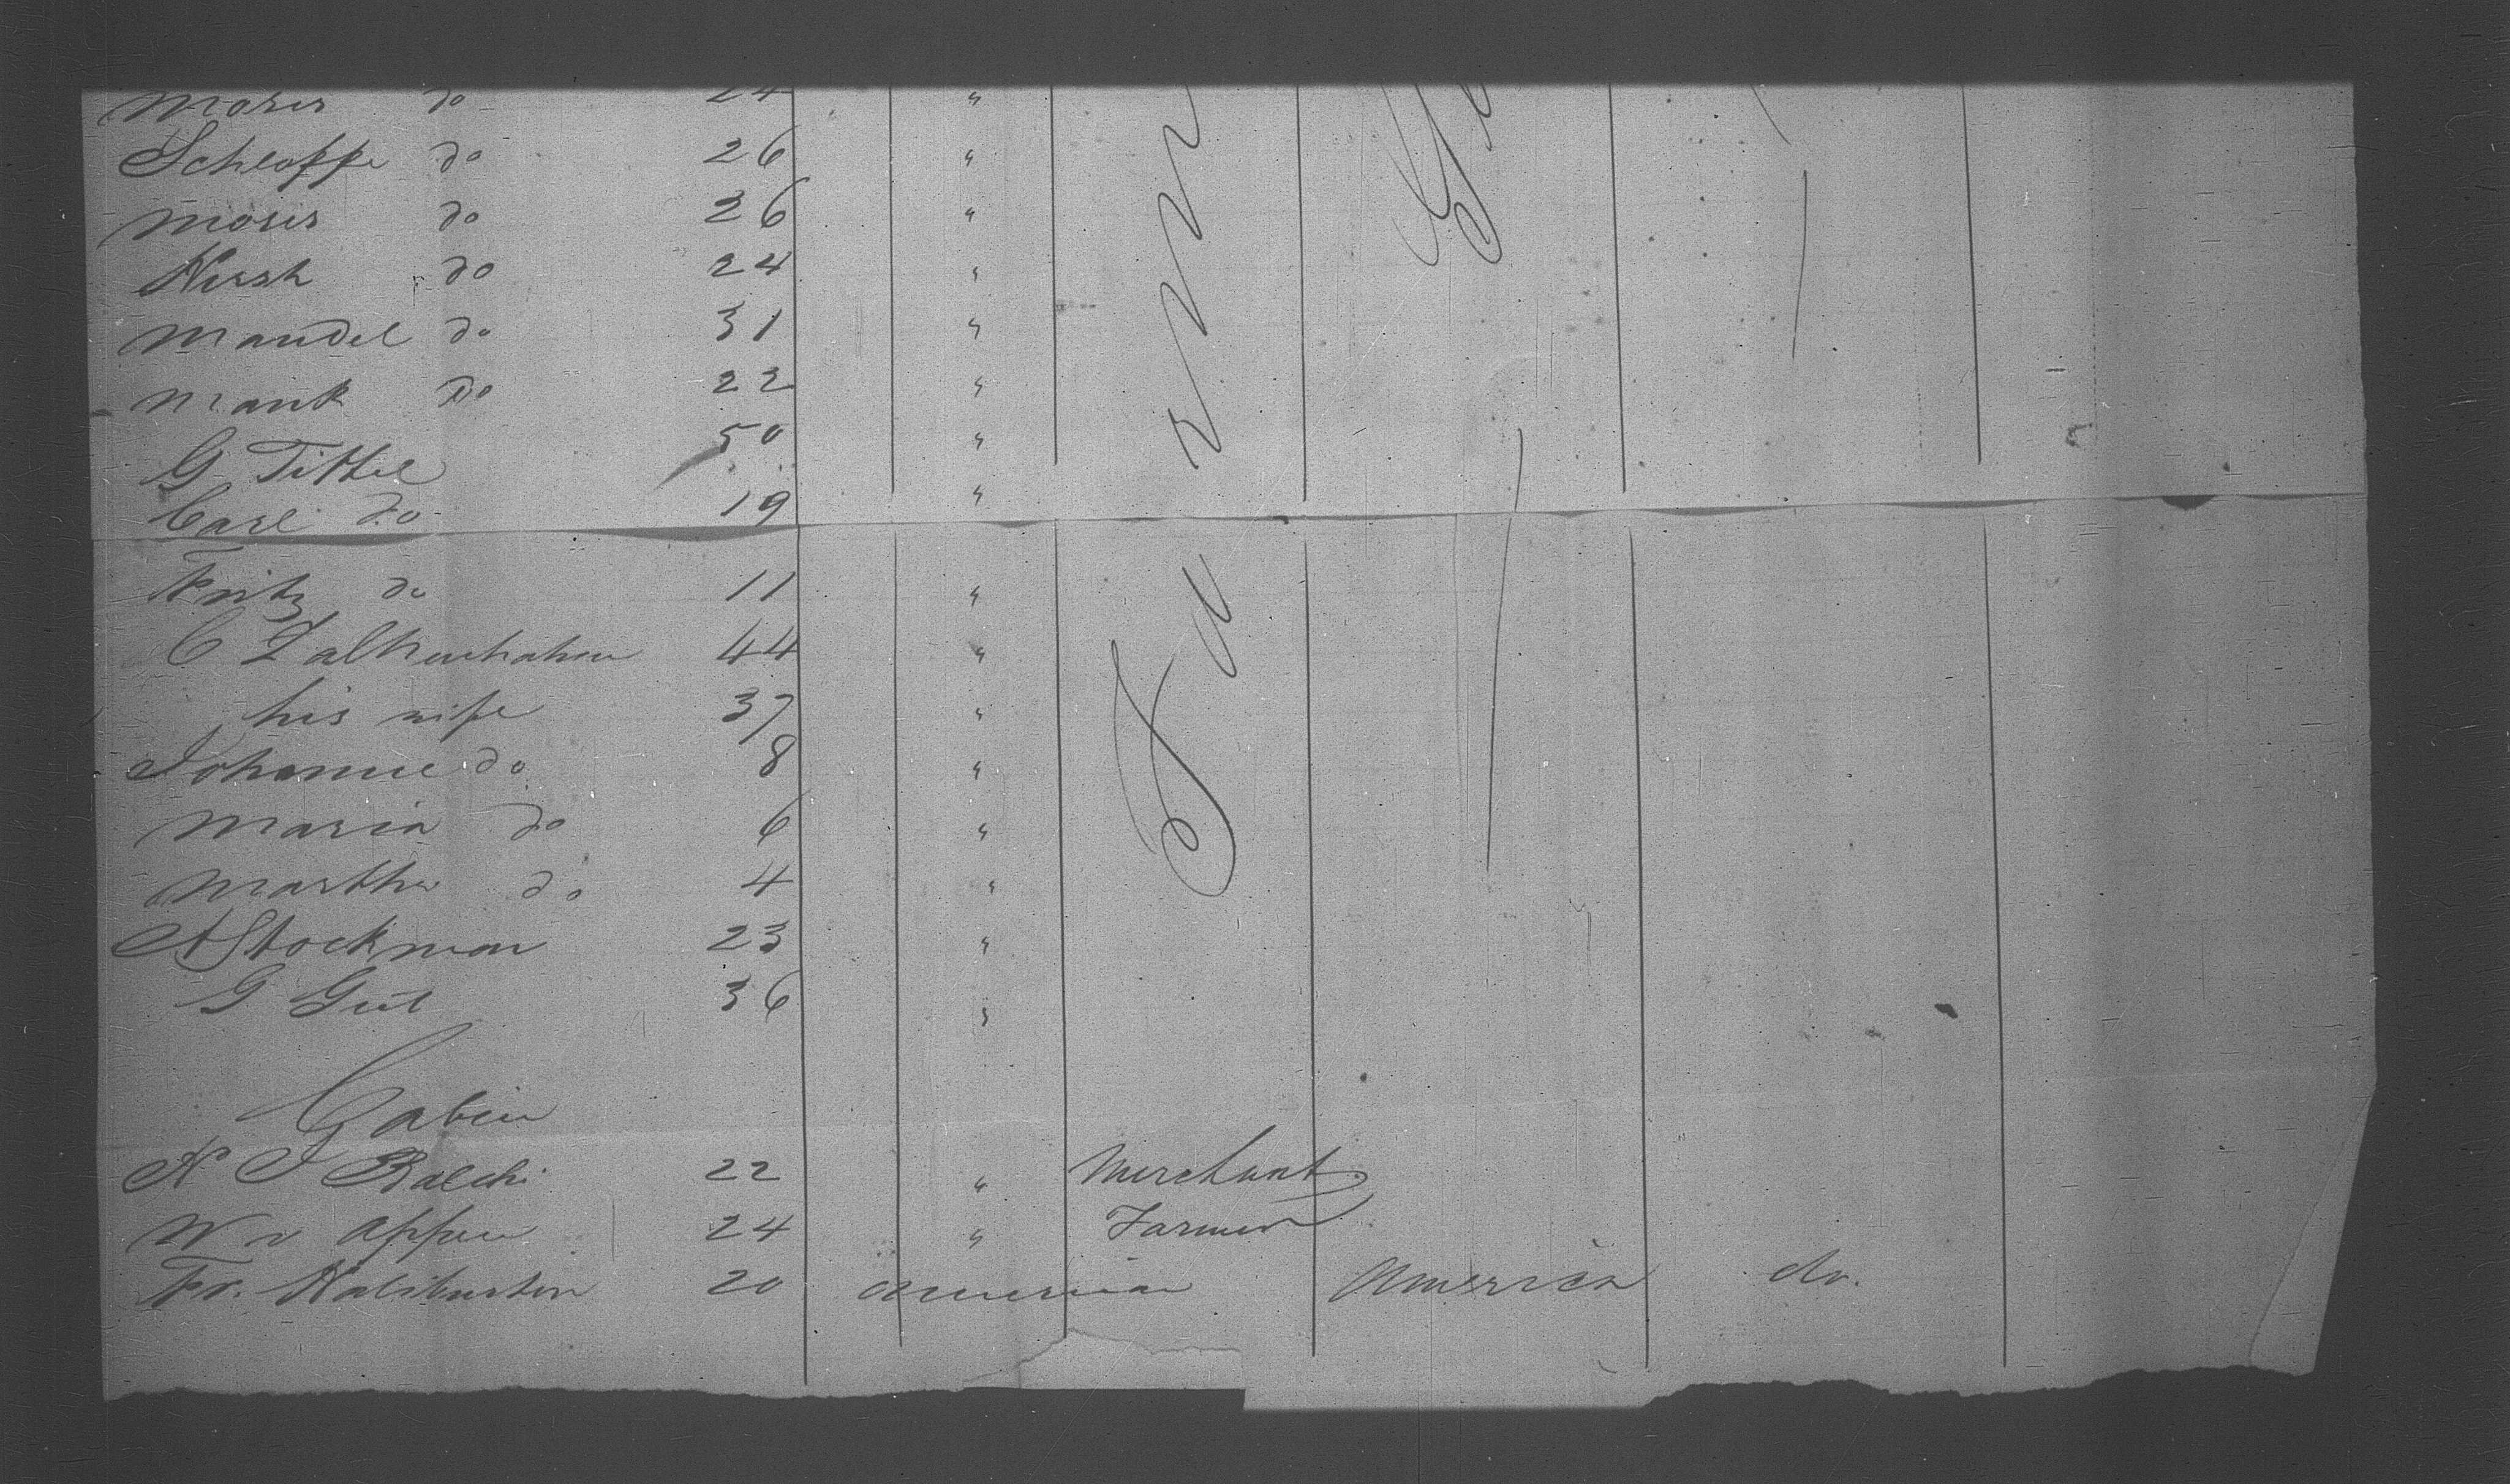 Moses do 24 "
Schloffe do 26 "
Moses do 26 "
Hersh do 24 "
Mandel do 31 "
Mank do 22 "
G Tittel 50 "
Carl do 19 "
Fritz do 11 "
C Falkenhahen 44 "
his wife 37 "
Johanne do 8 "
Maria do 6 "
Martha do 4 "
A Stockman 23 "
G Gut 36 "
Cabin
H J Balchi 22 " Merchant
W v Appen 24 " Farmer
Fr. Haliburton 20 American America do.